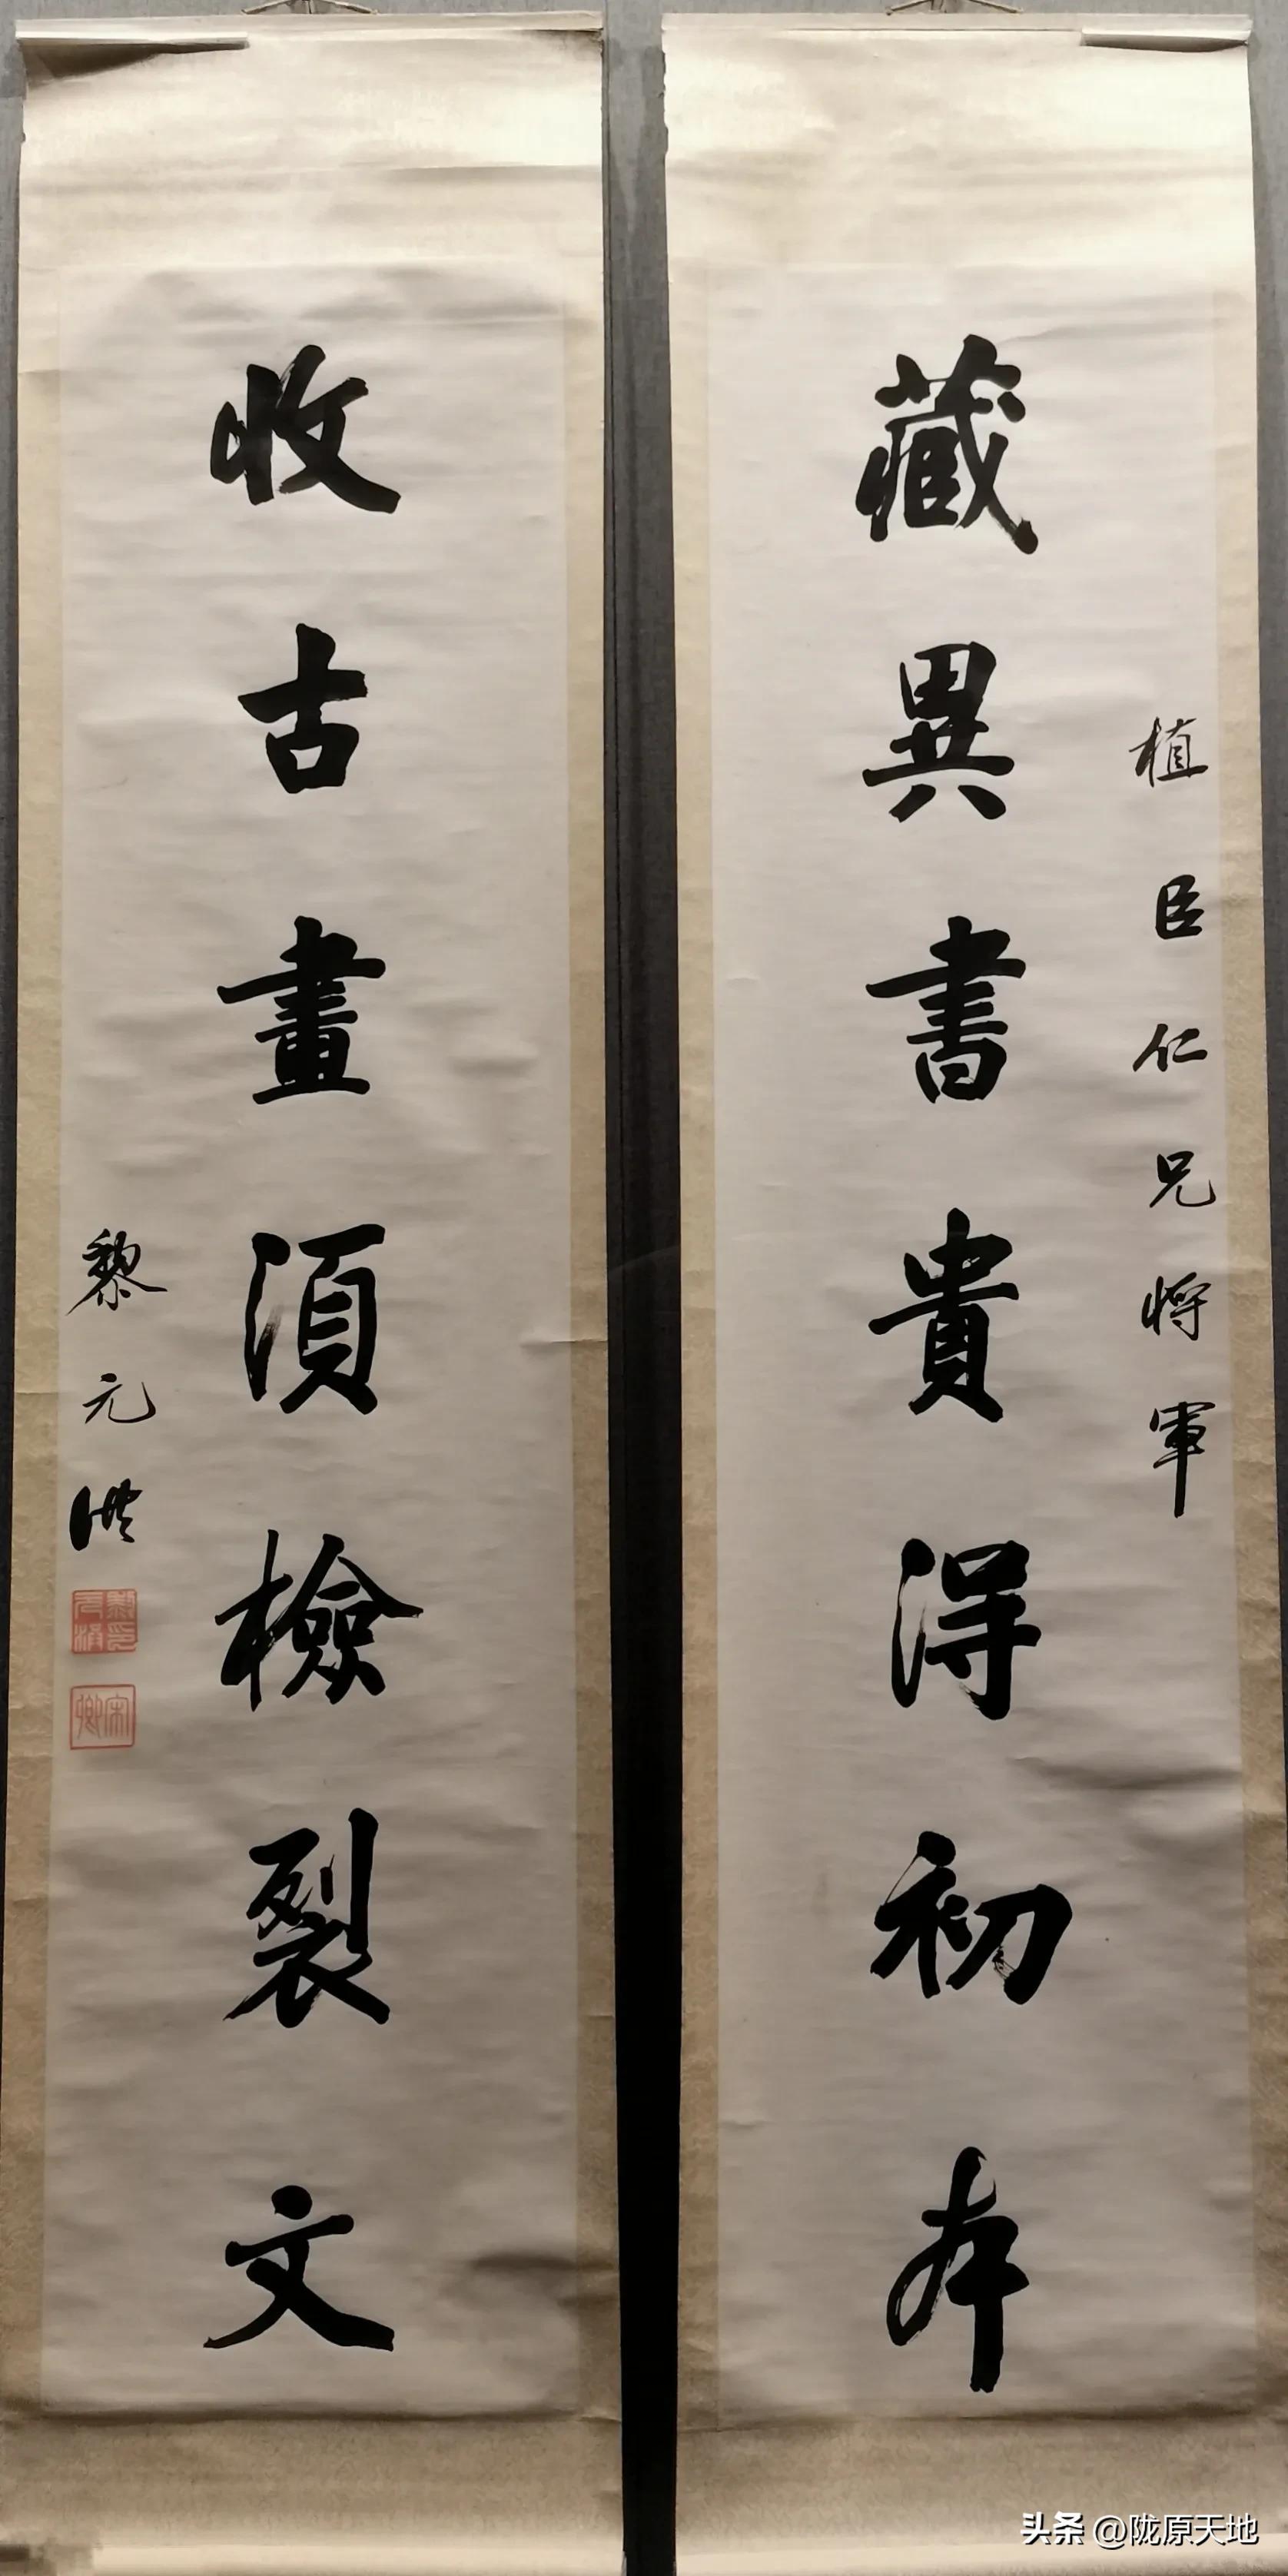 植臣仁兄將軍
藏異書貴得初本
收古畫須檢裂文
黎元洪
黎元洪印
宋卿
头条 @陇原天地